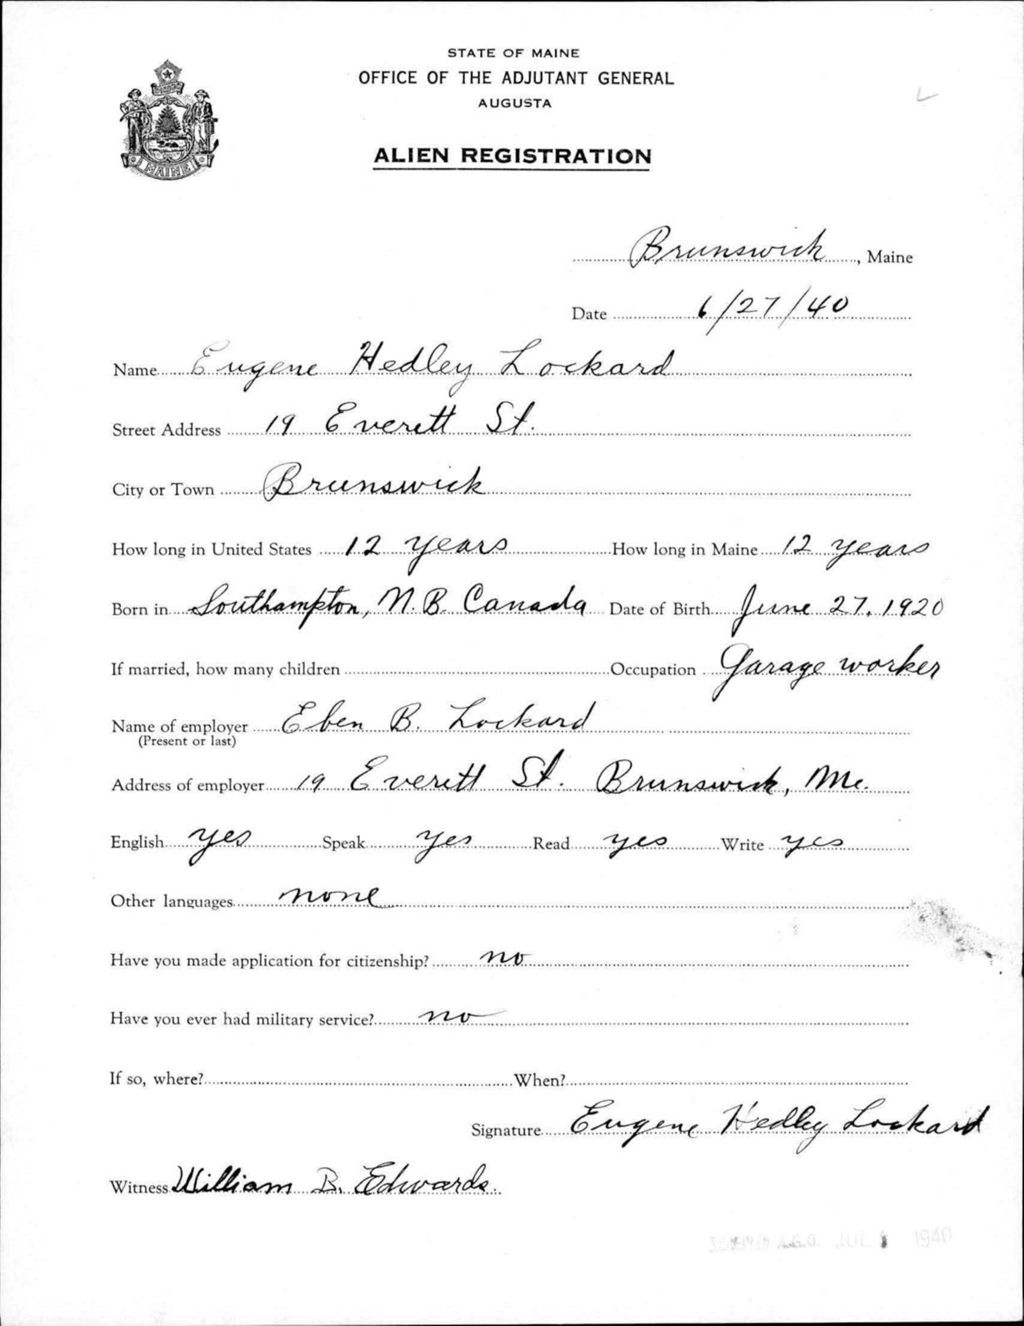 STATE OF MAINE
OFFICE OF THE ADJUTANT GENERAL
AUGUSTA
ALIEN REGISTRATION
MAINE
Brunswick, Maine
Date 6/27/40
Name Eugene Hedley Lockard
Street Address 19 Everett St.
City or Town Brunswick
How long in United States 12 years How long in Maine 12 years
Born in Southampton, N.B. Canada Date of Birth June 27, 1920
If married, how many children Occupation Garage worker
Name of employer Eben B. Lockard
(Present or last)
Address of employer 19 Everett St. Brunswick, Me.
English yes Speak yes Read yes Write yes
Other languages none
Have you made application for citizenship? no
Have you ever had military service? no
If so, where? When?
Signature Eugene Hedley Lockard
Witness William B. Edwards.
A.G.O. JUL 1940